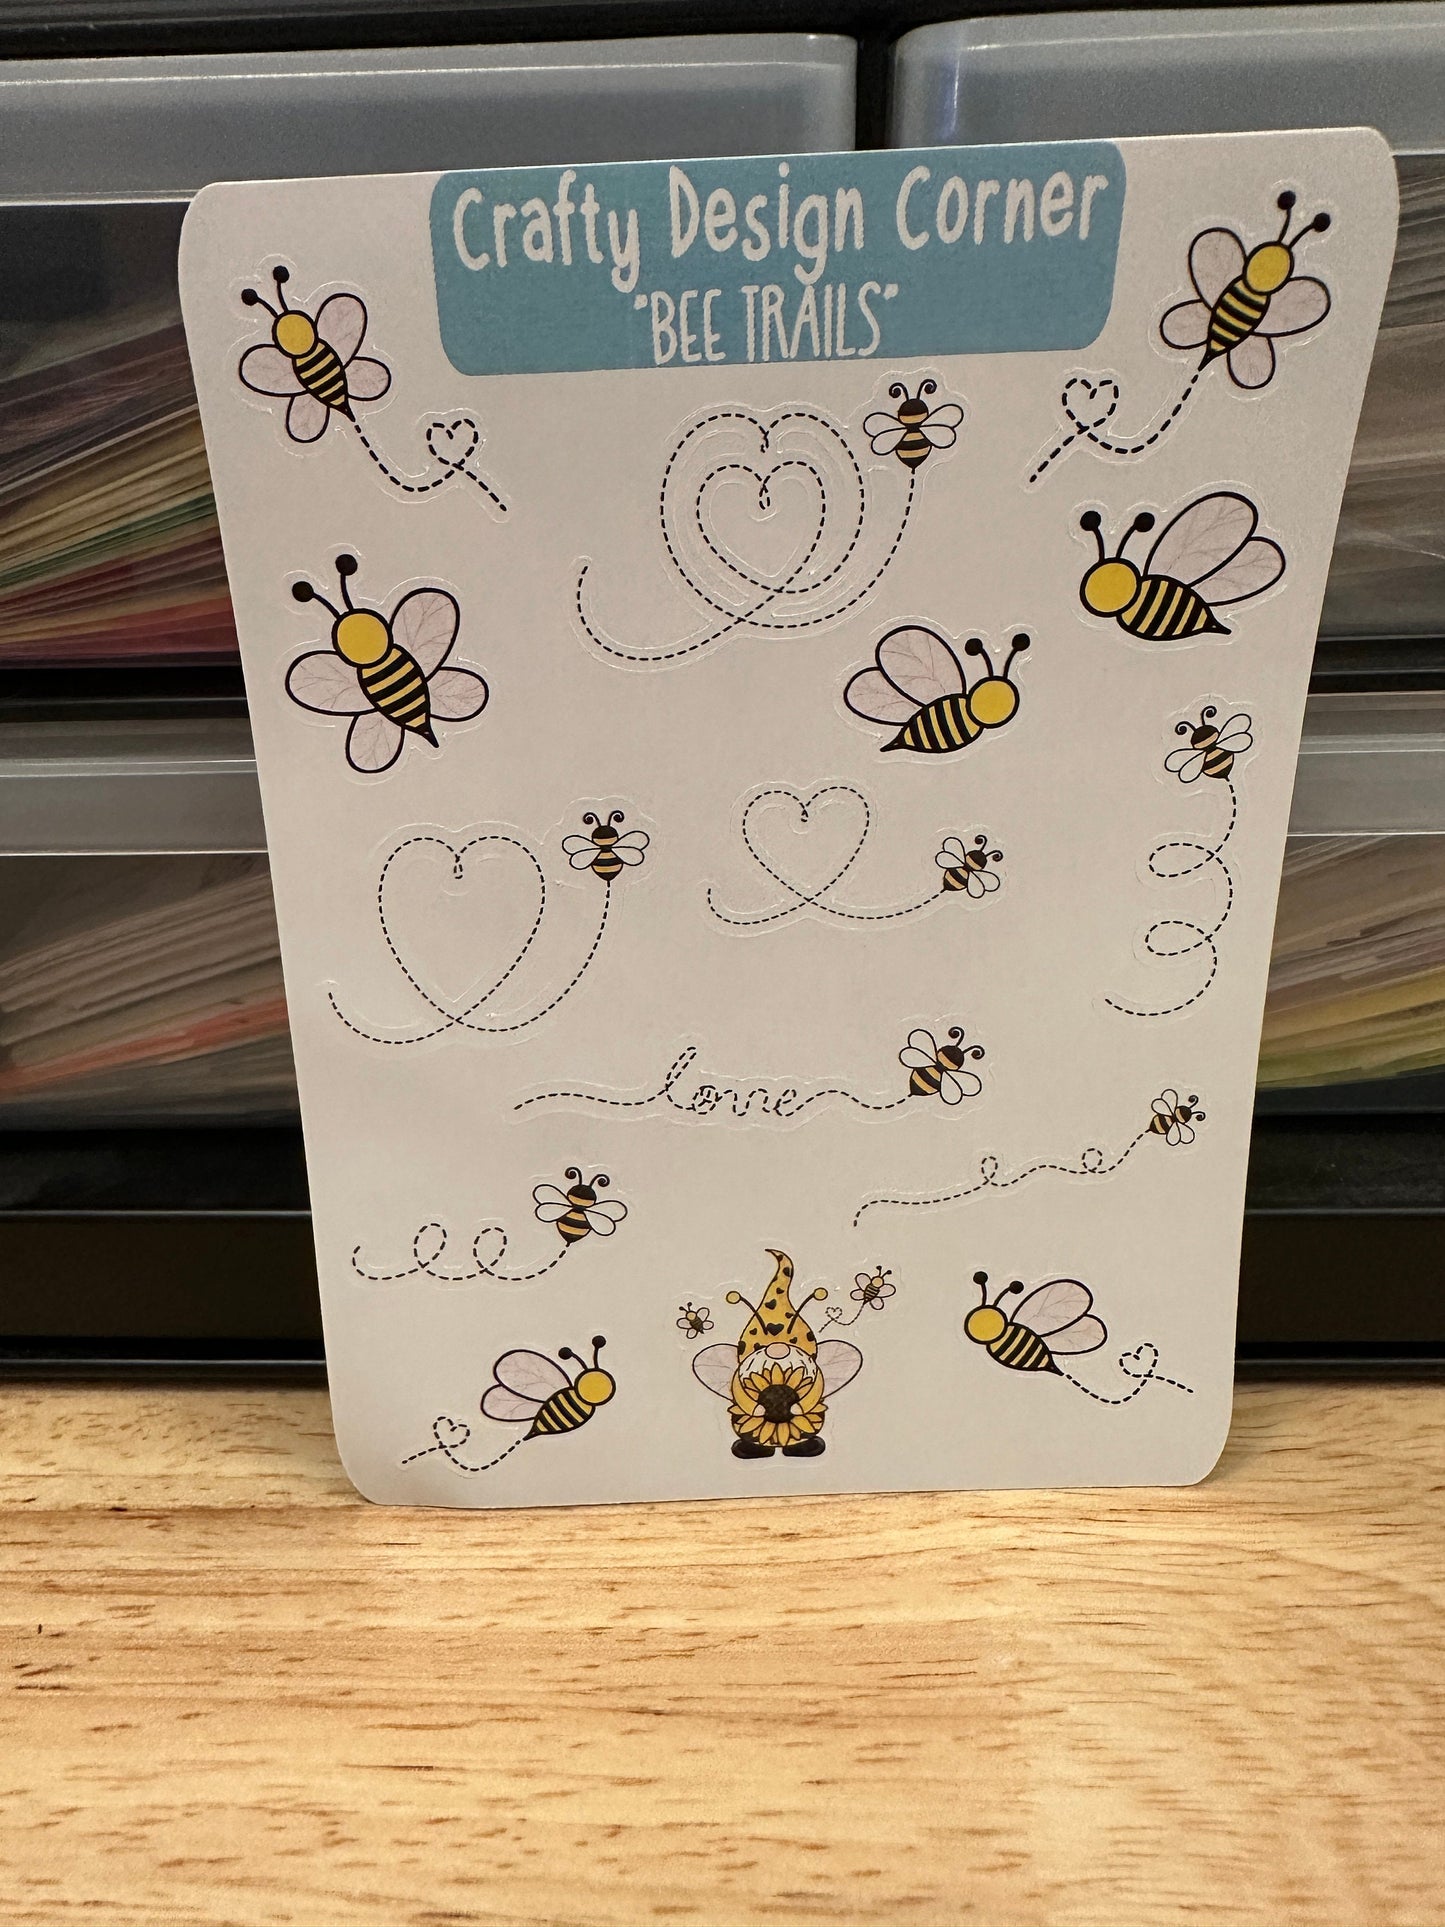 Crafty Design Corner
"BEE TRAILS"
love